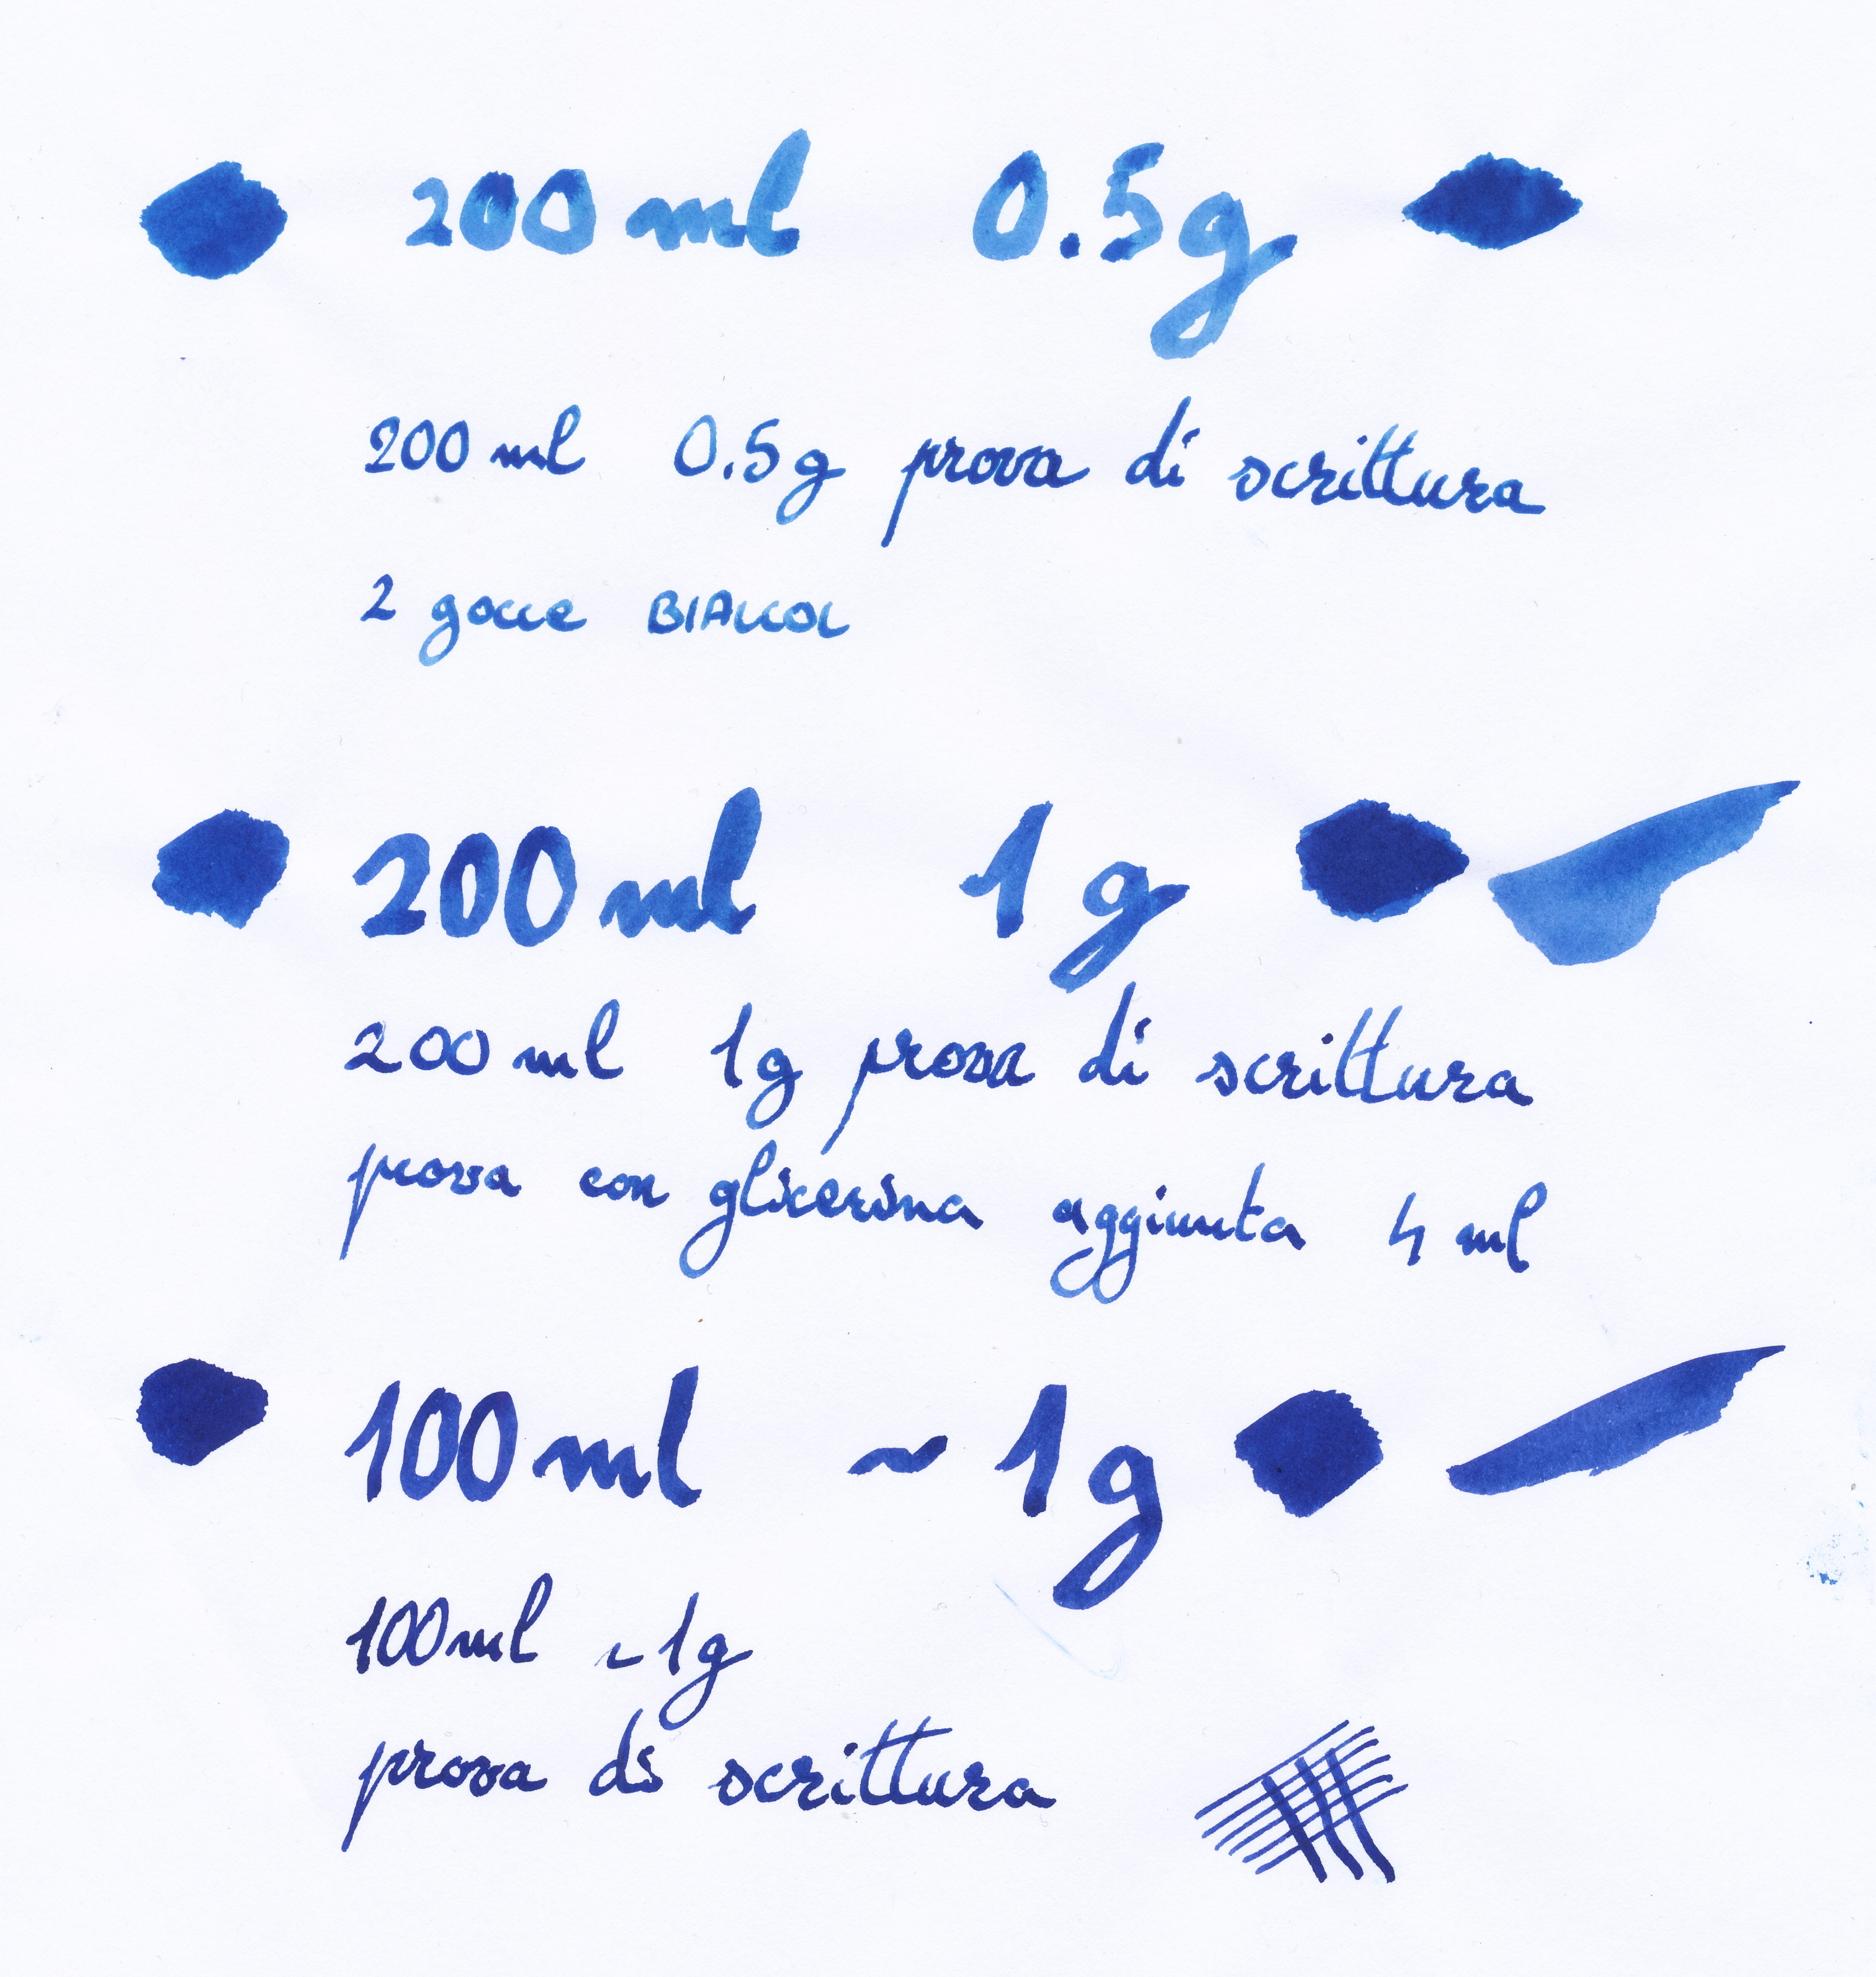 200 ml 0.5g
200 ml 0.5g prova di scrittura
2 gocce BIALCOL
200 ml 1 g
200 ml 1g prova di scrittura
prova con glicerina aggiunta 4 ml
100 ml ~ 1g
100 ml ~ 1g
prova di scrittura